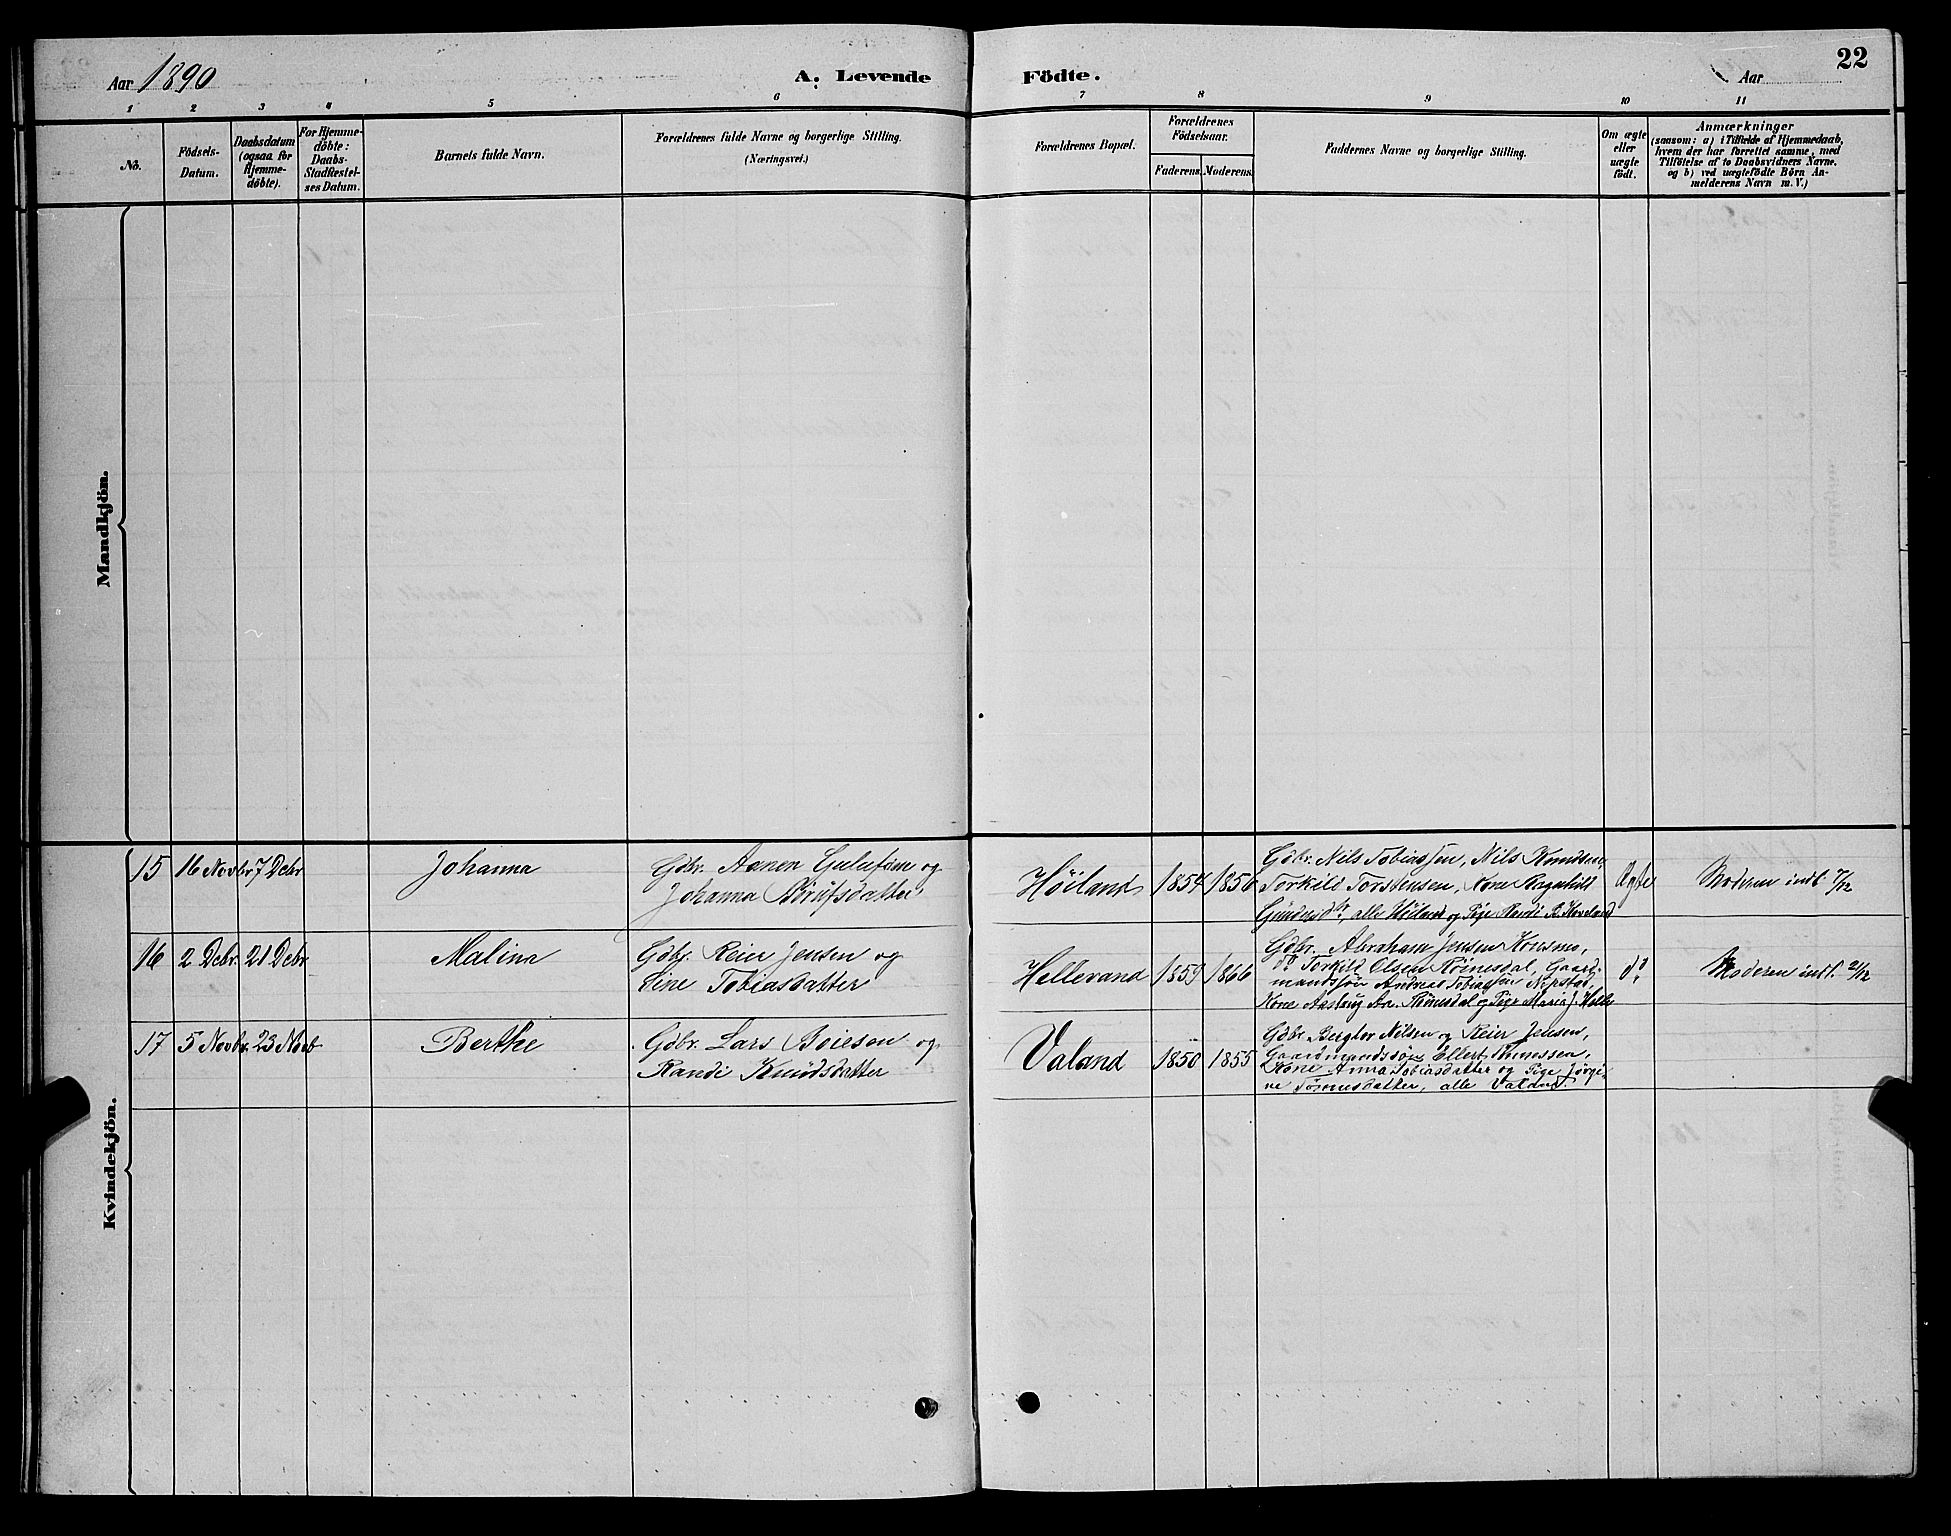 Aar 1890
A. Levende Födte.
Aar
22
1 2 3 4 5 6 7 8 9 10 11
No.
Födsels-
Datum.
Daabsdatum
(ogsaa for
Hjemme-
döbte).
For Hjemme-
döbte:
Daabs-
Stadfæstel-
ses Datum.
Barnets fulde Navn.
Forældrenes fulde Navne og borgerlige Stilling.
(Næringsvei.)
Forældrenes Bopæl.
Forældrenes
Födselsaar.
Faderens. Moderens.
Faddernes Navne og borgerlige Stilling.
Om ægte
eller
uægte
født.
Anmærkninger
(saasom: a) i Tilfælde af Hjemmedaab,
hvem der har forrettet samme, med
Tilföielse af to Daabsvidners Navne.
og b) ved uægtefödte Börn An-
melderens Navn m. V.)
Mandkjön.
Kvindekjön.
15 16 Novbr 7 Debr
Johanna
Gdbr. Aanen Gulefsen og
Johanna
Höiland
1854 1850
Gdbr. Nils Tobiassen, Nils Knudsen,
Torkild Torstensen, Kone Ragnhild
Gundersdtr, alle Höiland og Pige Randi B. Hoveland
Ægte
Moderen indl. 7/12
16 2 Debr. 21 Debr
Malina
Gdbr. Reier Jensen og
Sine Tobiasdatter
Hellevand
1859 1866
Gdbr. Abraham Jensen Konsmo,
do Torkild Olsen Röinesdal, Gaard-
mandssön Andreas Tobiassen
Kone Aaslaug An. Röinesdal og Pige Maria J. Helle
do
Moderen indl. 21/12
17 5 Novbr. 23 Novb
Berthe
Gdbr. Lars Boiesen og
Randi Knudsdatter
Valand
1850 1855
Gdbr. Bergtor Nilsen og Reier Jensen,
Gaardmandssön Ellert Tönnessen,
Kone Anna Tobiasdatter og Pige Jörgi-
ne Tönnesdatter, alle Valand